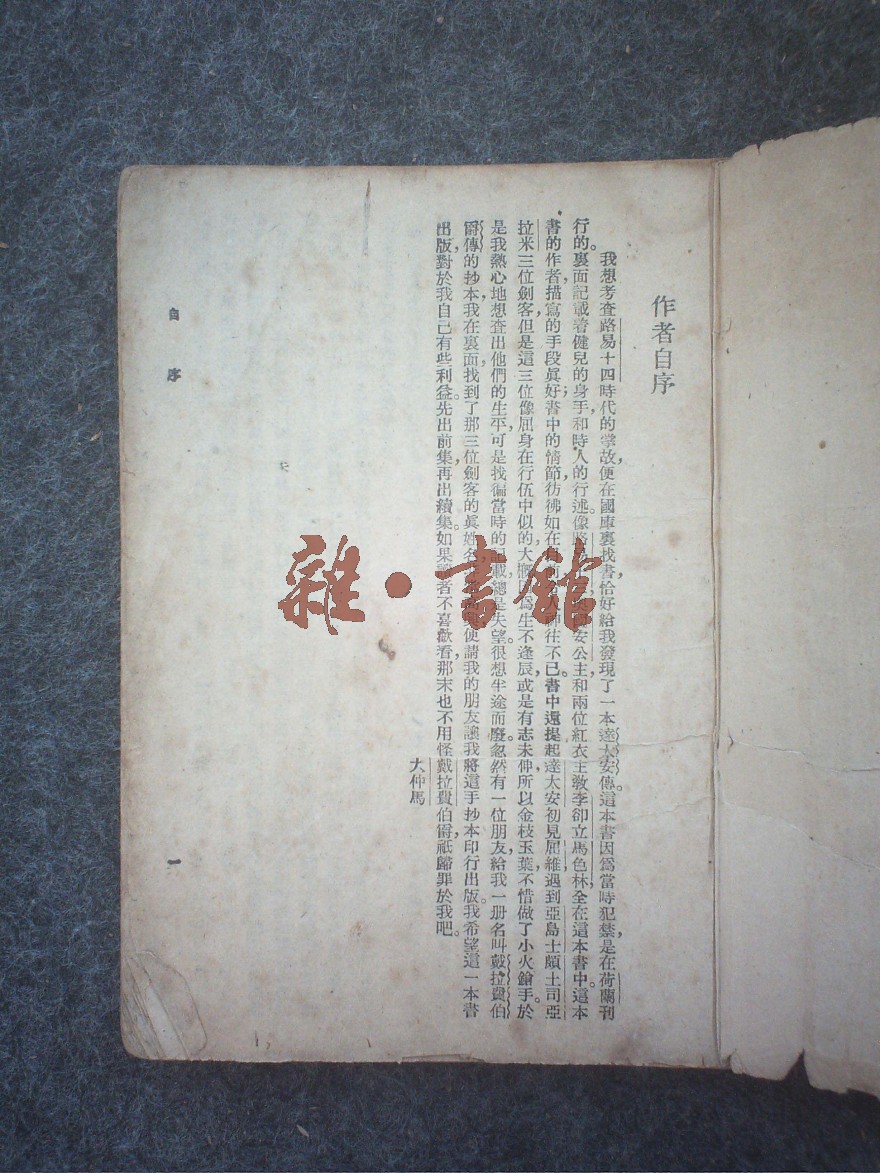 作者自序
我想考查路易十四時代的掌故,便在國庫裏找書,恰好給我發現了一本達大安傳。這本書因爲當時犯禁,是在荷蘭刊
行的。裏面記載着健兒的身手,和時人的行述。像路易安公主和兩位紅衣主敎李卻立馬色林,全在這本書中。這本
書的作者,描寫的手段眞好;書中的情節,彷彿如在神往不已。書中還提起達大安初見屈維,遇到亞島士頗土司亞
拉米三位劍客,但是這三位像屈身在行伍中似的大爲生不逢辰,或是有志未伸,所以金枝玉葉,不惜做了小火鎗手。於
是我熱心地想查出他們的生平,可是找徧當時的記載,總是失望。很想半途而廢。忽然有一位朋友,給我一册名叫戴拉費伯
爵傳的抄本,我在裏面,找到了那三位劍客的眞姓名便請我的朋友讓我將這手抄本印行出版。我希望這一本書
出版,對於我自己有些利益。先出前集,再出續集。如果讀者不喜歡看,那末也不用怪戴拉費伯爵,祇歸罪於我吧。
大仲馬
自序
一
雜·書館